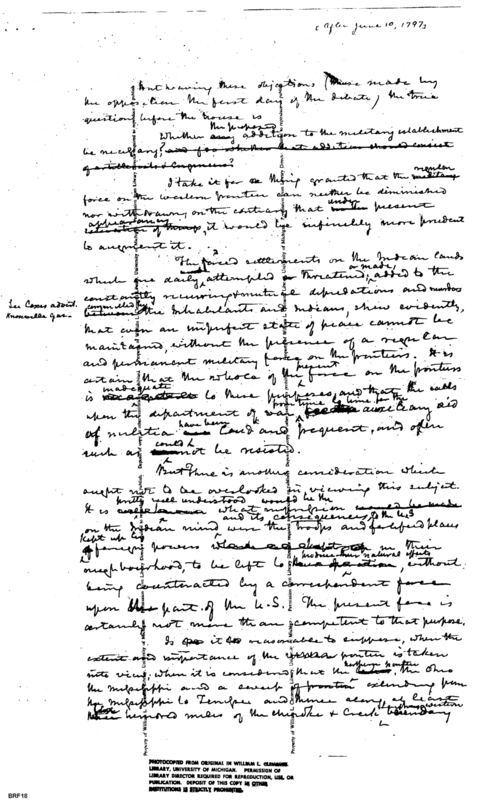 (After June 10, 1797)
But waiving these objections (those made by
the opposition the first day of the debate) the true
question before the house is
Whether the proposed addition to the military establishment
be necessary?
I take it for a thing granted that the regular
force on the western frontier can neither be diminished
nor withdrawn; on the contrary that under present
appearances, it would be infinitely more prudent
to augment it.
The forced settlements on the Indian lands
which are daily attempted or threatened, or made; added to the
constantly recurring & mutual depredations and murders
committed by the Inhabitants and Indians, shew evidently,
See Coxes advert.
Knoxville Gaz.
that even an imperfect state of peace cannot be
maintained, without the presence of a regular
and permanent military force on the frontiers. It is
certain that the whole of the present force on the frontiers
is inadequate to these purposes, and that the calls
upon the department of war from time to time for the auxiliary aid
of militia have been loud and frequent, and often
such as could not be resisted.
But there is another consideration which
ought not to be overlooked in viewing this subject.
It is pretty well understood what would be the impression
on the Indian mind and its consequences to the U.S. were the troops and fortified places
kept up by foreign powers in their
neighbourhood, to be left to produce their natural effects, without
being counteracted by a correspondent force
upon the part of the U.S. The present force is
certainly not more than competent to that purpose.
Is it reasonable to suppose, when the
extent and importance of the frontier is taken
into view; when it is considered that the northern frontier, the Ohio
the Mississippi and a sweep of frontier extending from
the Mississippi to Tennessee and thence along at least
hundred miles of the Cherokee & Creek boundary
Property of William L. Clements Library
PHOTOCOPIED FROM ORIGINAL IN WILLIAM L. CLEMENTS
LIBRARY, UNIVERSITY OF MICHIGAN. PERMISSION OF
LIBRARY DIRECTOR REQUIRED FOR REPRODUCTION, USE, OR
PUBLICATION. DEPOSIT OF THIS COPY IN OTHER
INSTITUTIONS IS STRICTLY PROHIBITED.
BRF18